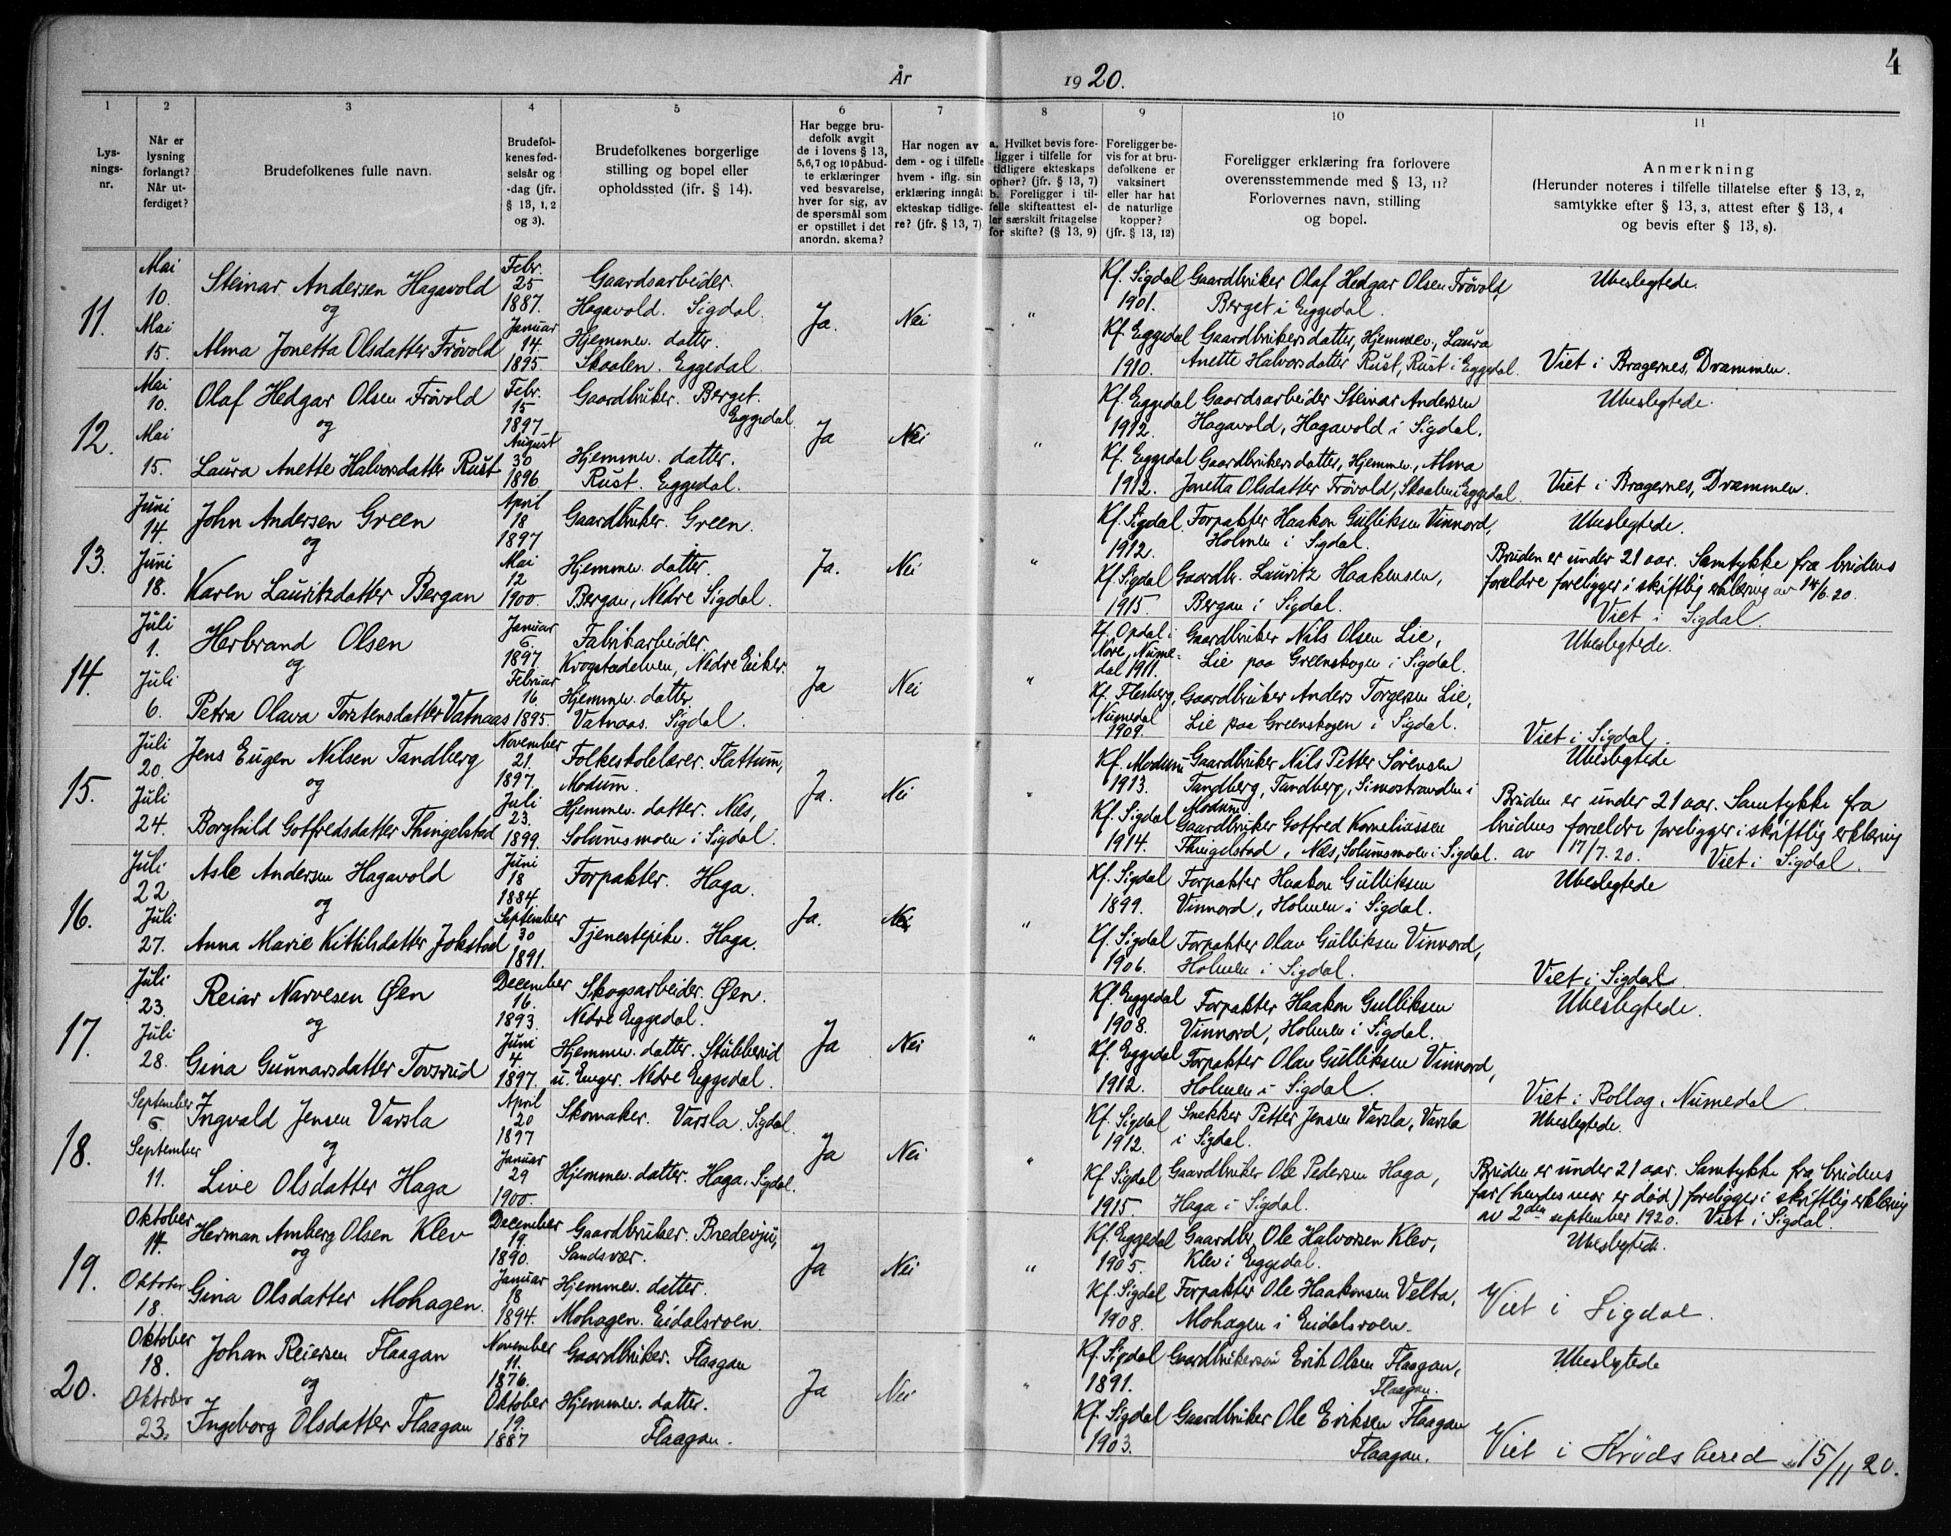 År 1920.
4
1 2 3 4 5 6 7 8 9 10 11
Lys-
nings-
nr.
Når er
lysning
forlangt?
Når ut-
ferdiget?
Brudefolkenes fulle navn.
Brudefol-
kenes fød-
selsår og
-dag (jfr.
§ 13, 1, 2
og 3).
Brudefolkenes borgerlige
stilling og bopel eller
opholdssted (ifr. § 14).
Har begge bru-
defolk avgit
de i lovens § 13,
5, 6, 7 og 10 påbud-
te erklæringer
ved besvarelse,
hver for sig, av
de spørsmål som
er opstillet i det
anordn. skema?
Har nogen av
dem - og i tilfelle
hvem - iflg. sin
erklæring inngåt
ekteskap tidlige-
re? (jfr. § 13, 7)
a. Hvilket bevis fore-
ligger i tilfelle for
tidligere ekteskaps
ophør? (jfr. § 13, 7)
b. Foreligger i til-
felle skifteattest el-
ler særskilt fritagelse
for skifte? (§ 13, 9)
Foreligger be-
vis for at bru-
defolkene er
vaksinert
eller har hat
de naturlige
kopper?
(jfr. § 13, 12)
Foreligger erklæring fra forlovere
overensstemmende med § 13, 11?
Forlovernes navn, stilling
og bopel.
Anmerkning
(Herunder noteres i tilfelle tillatelse efter § 13, 2,
samtykke efter § 13, 3, attest efter § 13, 4
og bevis efter § 13, 8).
11.
Mai
10.
Mai
15.
Steinar Andersen Hagavold
og
Alma Jonetta Olsdatter Frøvold
Febr.
25
1887.
Januar
14.
1895
Gaardsarbeider.
Hagavold. Sigdal.
Hjemmev. datter.
Skaalen. Eggedal
Ja. Nei "
Kf. Sigdal
1901.
Kf. Eggedal
1910.
Gaardbruker Olaf Hedgar Olsen Frøvold,
Berget i Eggedal.
Gaardbrukersdatter, Hjemmev., Laura
Anette Halvorsdatter Rust, Rust i Eggedal.
Ubeslegtede.
Viet i Bragernes, Drammen.
12.
Mai
10.
Mai
15.
Olaf Hedgar Olsen Frøvold
og
Laura Anette Halvorsdatter Rust
Febr.
15
1897
August
30
1896
Gaardbruker. Berget.
Eggedal.
Hjemmev. datter.
Rust. Eggedal.
Ja Nei "
Kf. Eggedal
1912.
Kf. Eggedal
1912.
Gaardsarbeider Steinar Andersen
Hagavold, Hagavold i Sigdal.
Gaardbrukersdatter, Hjemmev., Alma
Jonetta Olsdatter Frøvold, Skaalen i Eggedal.
Ubeslegtede.
Viet i Bragernes, Drammen.
13.
Juni
14.
Juni
18.
John Andersen Green
og
Karen Lauritzdatter Bergan
April
18
1897
Mai
12
1900.
Gaardbruker. Green.
Hjemmev. datter.
Bergan, Nedre Sigdal.
Ja. Nei "
Kf. Sigdal
1912.
Kf. Sigdal
1915.
Forpakter Haakon Gulliksen Vinnord,
Holmen i Sigdal.
Gaardbr. Lauritz Haakensen,
Bergan i Sigdal.
Ubeslegtede.
Bruden er under 21 aar. Samtykke fra brudens
forældre foreligger i skriftlig erklæring av 14/6. 20.
Viet i Sigdal.
14.
Juli
1.
Juli
6.
Herbrand Olsen
og
Petra Olava Torstensdatter Vatnaas
Januar
6.
1897.
Februar
16.
1895.
Fabrikarbeider.
Krogstadelven, Nedre Eiker.
Hjemmev. datter.
Vatnaas. Sigdal.
Ja Nei "
Kf. Opdal i
Nore, Nume-
dal 1911.
Kf. Flesberg,
Numedal
1909.
Gaardbruker Nils Olsen Lie,
Lie paa Greenskogen i Sigdal.
Gaardbruker Anders Torgersen Lie,
Lie paa Greenskogen i Sigdal.
Ubeslegtede.
Viet i Sigdal.
15.
Juli
20.
Juli
24.
Jens Eugen Nilsen Tandberg
og
Borghild Gotfredsdatter Thingelstad
November
21.
1897.
Juli
23.
1899.
Folkeskolelærer. Flattum,
Modum.
Hjemmev. datter. Næs,
Solumsmoen i Sigdal.
Ja. Nei "
Kf. Modum
1913.
Kf. Sigdal
1914.
Gaardbruker Nils Petter Sørensen
Tandberg, Tandberg, Simostranden i
Modum
Gaardbruker Gotfred Korneliussen
Thingelstad, Næs, Solumsmoen i Sigdal.
Ubeslegtede
Bruden er under 21 aar. Samtykke fra
brudens forældre foreligger i skriftlig erklæring
av 17/7. 20. Viet i Sigdal.
16.
Juli
22
Juli
27.
Asle Andersen Hagavold
og
Anna Marie Kittilsdatter Jokstad
Juni
18
1884.
September
30
1891.
Forpakter. Haga.
Tjenestepike. Haga.
Ja. Nei "
Kf. Sigdal
1899.
Kf. Sigdal
1906.
Forpakter Haakon Gulliksen
Vinnord, Holmen i Sigdal.
Forpakter Olav Gulliksen Vinnord,
Holmen i Sigdal.
Ubeslegtede
Viet i Sigdal.
17.
Juli
23.
Juli
28.
Reiar Narvesen Øen
og
Gina Gunnarsdatter Tovsrud
December
16.
1893.
Juni
4.
1897.
Skogsarbeider. Øen.
Nedre Eggedal.
Hjemmev. datter. Stubberud
u. Enger. Nedre Eggedal.
Ja Nei "
Kf. Eggedal
1908.
Kf. Eggedal
1912.
Forpakter Haakon Gulliksen
Vinnord, Holmen i Sigdal.
Forpakter Olav Gulliksen Vinnord,
Holmen i Sigdal.
Ubeslegtede.
Viet i Rollag, Numedal
18.
September
6.
September
11.
Ingvald Jensen Varsla
og
Live Olsdatter Haga
April
20
1897
Januar
29
1900.
Skomaker. Varsla. Sigdal.
Hjemmev. datter. Haga. Sigdal.
Ja Nei "
Kf. Sigdal
1912.
Kf. Sigdal
1915.
Snekker Petter Jensen Varsla, Varsla
i Sigdal.
Gaardbruker Ole Pedersen Haga,
Haga i Sigdal.
Ubeslegtede.
Bruden er under 21 aar. Samtykke fra brudens
far (hendes mor er død) foreligger i skriftlig erklæring
av 2den september 1920. Viet i Sigdal.
19.
Oktober
14.
Oktober
18.
Herman Amberg Olsen Klev
og
Gina Olsdatter Mohagen.
December
19.
1890.
Januar
18
1894.
Gaardbruker. Bredevju,
Sandsvær.
Hjemmev. datter.
Mohagen. Eidalsroen.
Ja Nei "
Kf. Eggedal
1905.
Kf. Sigdal
1908.
Gaardbr. Ole Halvorsen Klev,
Klev i Eggedal.
Forpakter Ole Haakonsen Velta,
Mohagen i Eidalsroen.
Ubeslegtede.
Viet i Sigdal.
20.
Oktober
18.
Oktober
23.
Johan Reiersen Flaagan
og
Ingeborg Olsdatter Flaagan
November
11.
1876.
Oktober
19.
1887
Gaardbruker. Flaagan
Hjemmev. datter.
Flaagan.
Ja Nei "
Kf. Sigdal
1891.
Kf. Sigdal
1903.
Gaardbrukersøn Erik Olsen Flaagan,
Flaagan.
Gaardbruker Ole Eriksen Flaagan
Flaagan.
Ubeslegtede
Viet i Krødsherred 15/11 20.